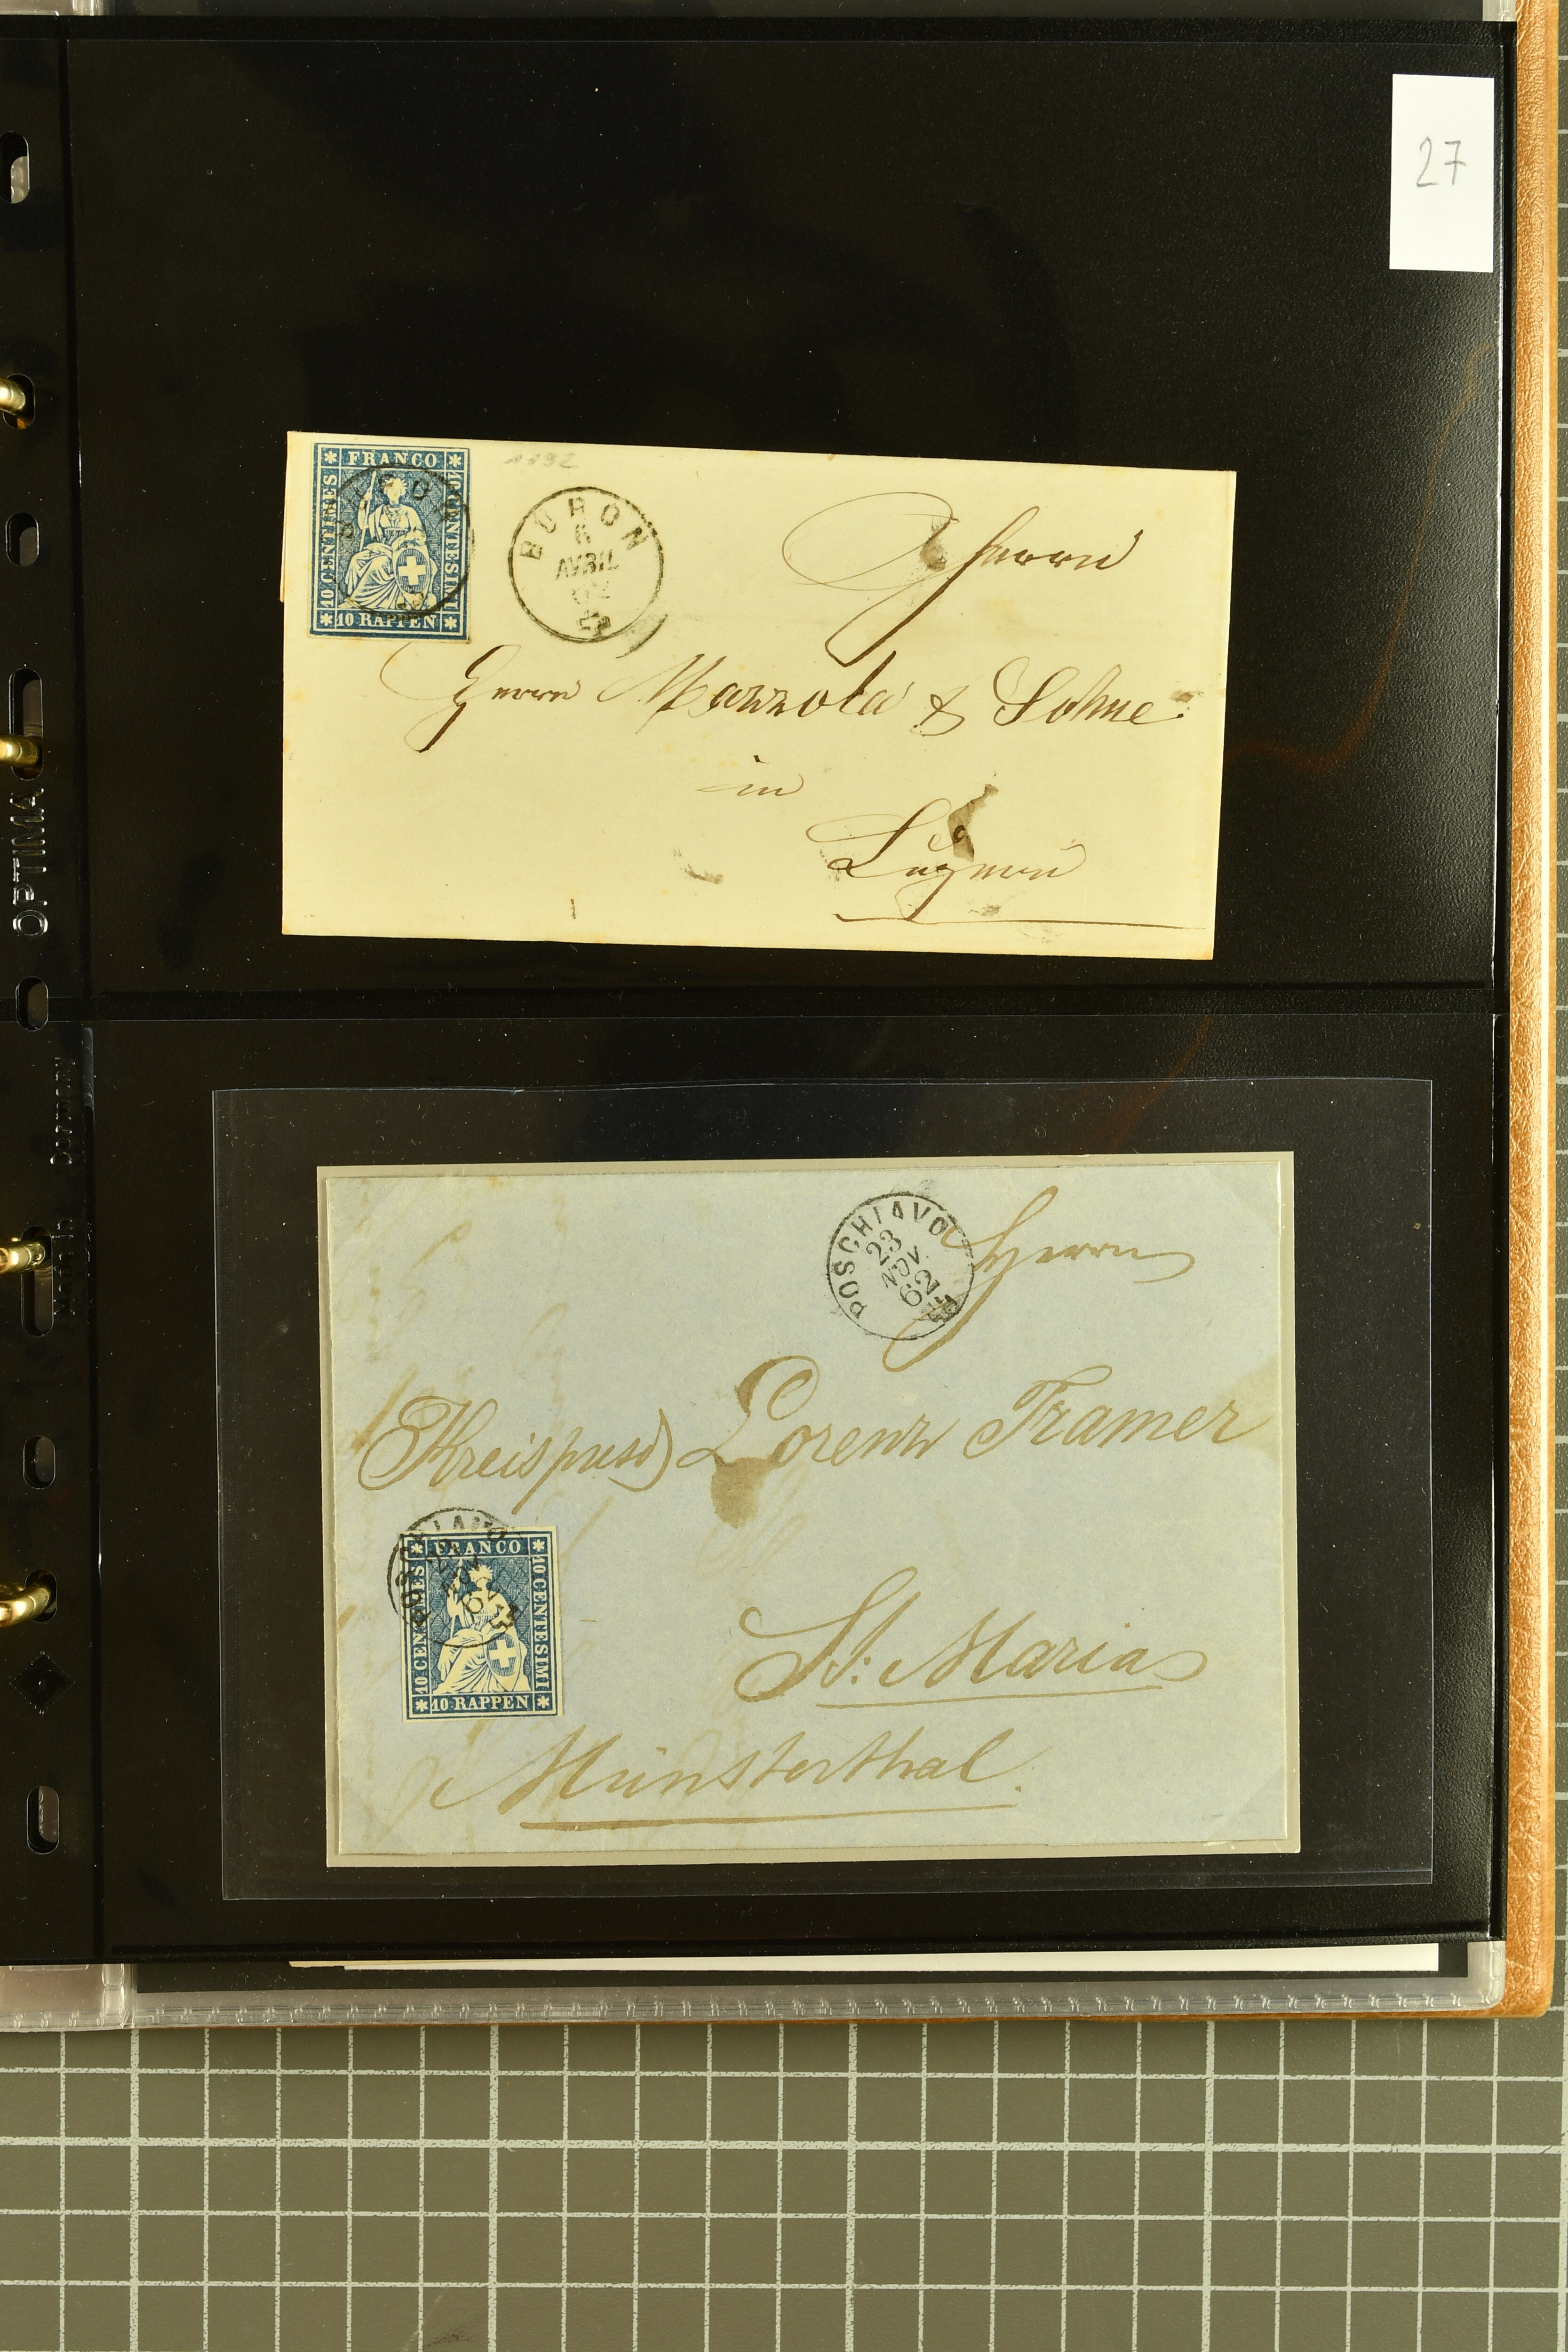 27
FRANCO
10 CENTIMES
10 CENTESIMI
10 RAPPEN
BURON
6
AVRIL
Herrn
Herrn Mazzola & Sohne
in
Luzern
OPTIMA
POSCHIAVO
23
NOV
62
Herrn
Lorenz Tramer
FRANCO
10 CENTIMES
10 CENTESIMI
10 RAPPEN
St: Maria
Münsterthal.